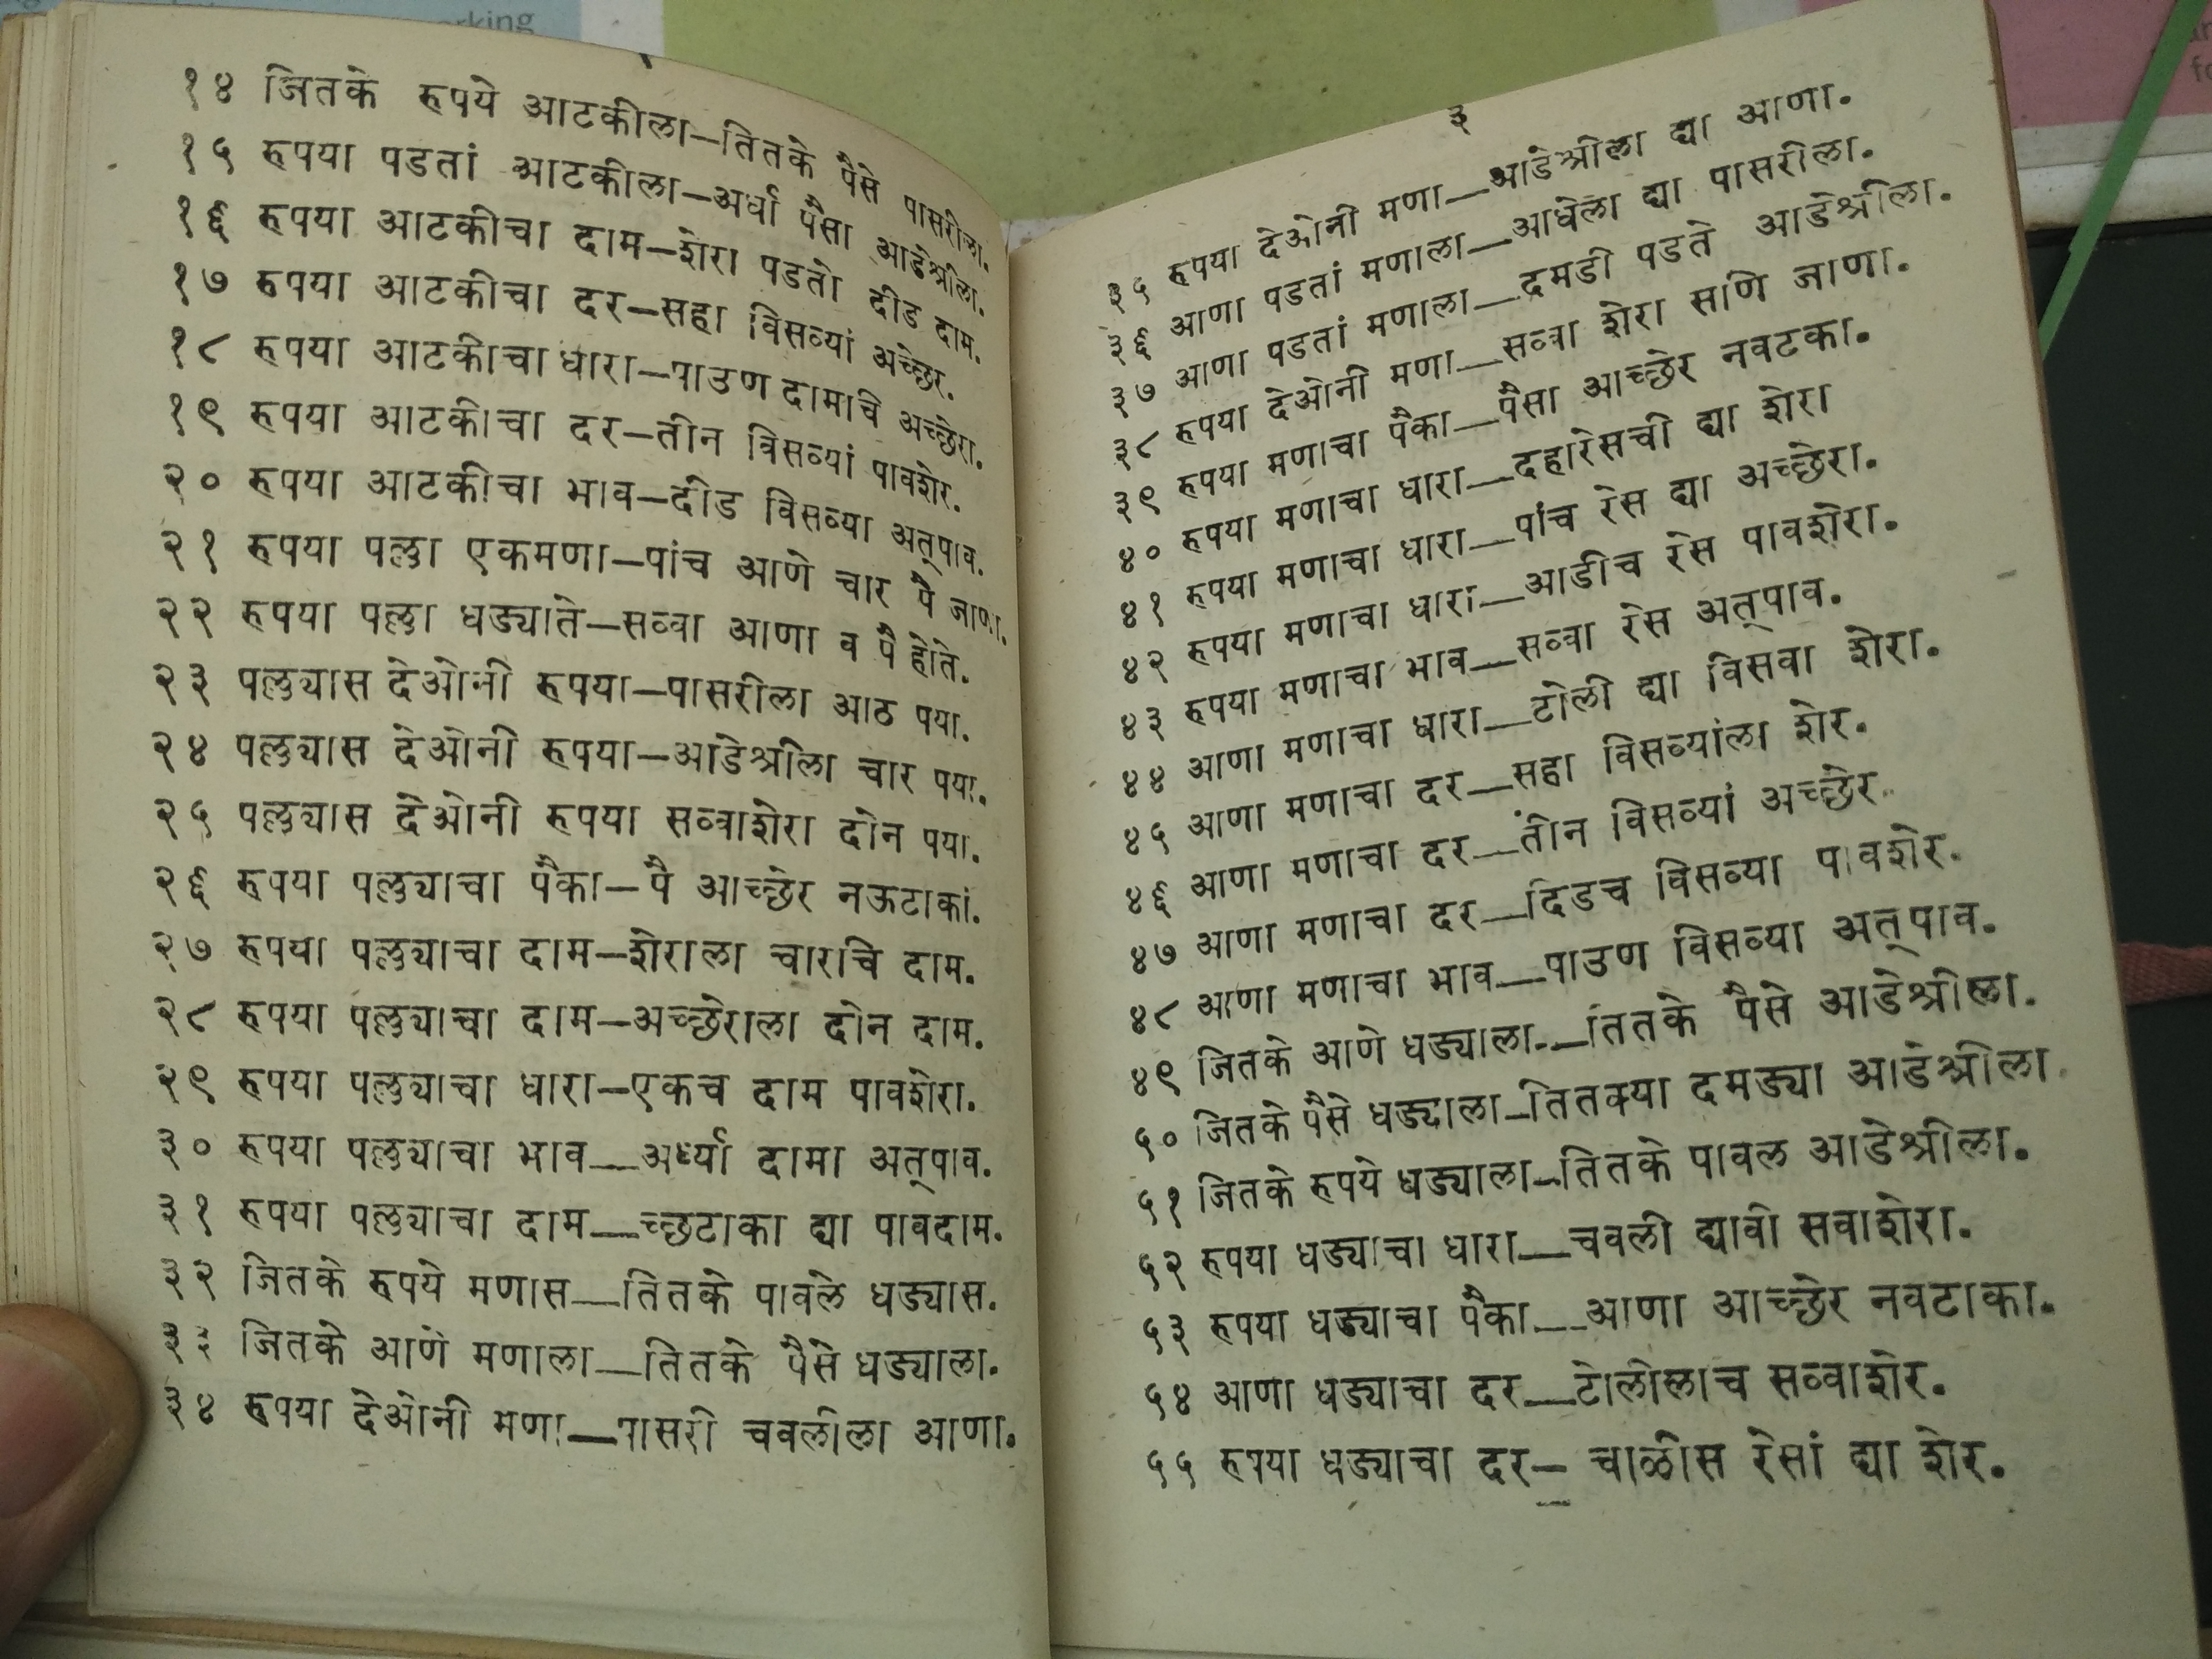 rking
१४ जितके रुपये आटकीला—तितके पैसे पासरीला.
१५ रुपया पडतां आटकीला—अर्धा पैसा आडेश्रीला.
१६ रुपया आटकीचा दाम—शेरा पडतो दीड दाम.
१७ रुपया आटकीचा दर—सहा विसव्यां अच्छेर.
१८ रुपया आटकीचा धारा—पाउण दामाचे अच्छेरा.
१९ रुपया आटकीचा दर—तीन विसव्यां पावशेर.
२० रुपया आटकीचा भाव—दीड विसव्या अत्पाव.
२१ रुपया पल्ला एकमणा—पांच आणे चार पै जाणा.
२२ रुपया पल्ला धड्याते—सव्वा आणा व पै होते.
२३ पल्ल्यास देओनी रुपया—पासरीला आठ पया.
२४ पल्ल्यास देओनी रुपया—आडेश्रीला चार पया.
२५ पल्ल्यास देओनी रुपया सव्वाशेरा दोन पया.
२६ रुपया पल्ल्याचा पैका—पै आच्छेर नऊटाकां.
२७ रुपया पल्ल्याचा दाम—शेराला चारचि दाम.
२८ रुपया पल्ल्याचा दाम—अच्छेराला दोन दाम.
२९ रुपया पल्ल्याचा धारा—एकच दाम पावशेरा.
३० रुपया पल्ल्याचा भाव—अर्ध्या दामा अत्पाव.
३१ रुपया पल्ल्याचा दाम—च्छटाका द्या पावदाम.
३२ जितके रुपये मणास—तितके पावले धड्यास.
३३ जितके आणे मणाला—तितके पैसे धड्याला.
३४ रुपया देओनी मणा—पासरी चवलीला आणा.
३
३५ रुपया देओनी मणा—आडेश्रीला द्या आणा.
३६ आणा पडतां मणाला—आधेला द्या पासरीला.
३७ आणा पडतां मणाला—दमडी पडते आडेश्रीला.
३८ रुपया देओनी मणा—सव्वा शेरा साणि जाणा.
३९ रुपया मणाचा पैका—पैसा आच्छेर नवटका.
४० रुपया मणाचा धारा—दहारेसची द्या शेरा
४१ रुपया मणाचा धारा—पांच रेस द्या अच्छेरा.
४२ रुपया मणाचा धारा—आडीच रेस पावशेरा.
४३ रुपया मणाचा भाव—सव्वा रेस अत्पाव.
४४ आणा मणाचा धारा—टोली द्या विसवा शेरा.
४५ आणा मणाचा दर—सहा विसव्यांला शेर.
४६ आणा मणाचा दर—तीन विसव्यां अच्छेर.
४७ आणा मणाचा दर—दिडच विसव्या पावशेर.
४८ आणा मणाचा भाव—पाउण विसव्या अत्पाव.
४९ जितके आणे धड्याला—तितके पैसे आडेश्रीला.
५० जितके पैसे धड्याला—तितक्या दमड्या आडेश्रीला.
५१ जितके रुपये धड्याला—तितके पावल आडेश्रीला.
५२ रुपया धड्याचा धारा—चवली द्यावी सवाशेरा.
५३ रुपया धड्याचा पैका—आणा आच्छेर नवटाका.
५४ आणा धड्याचा दर—टोलीलाच सव्वाशेर.
५५ रुपया धड्याचा दर— चाळीस रेसां द्या शेर.